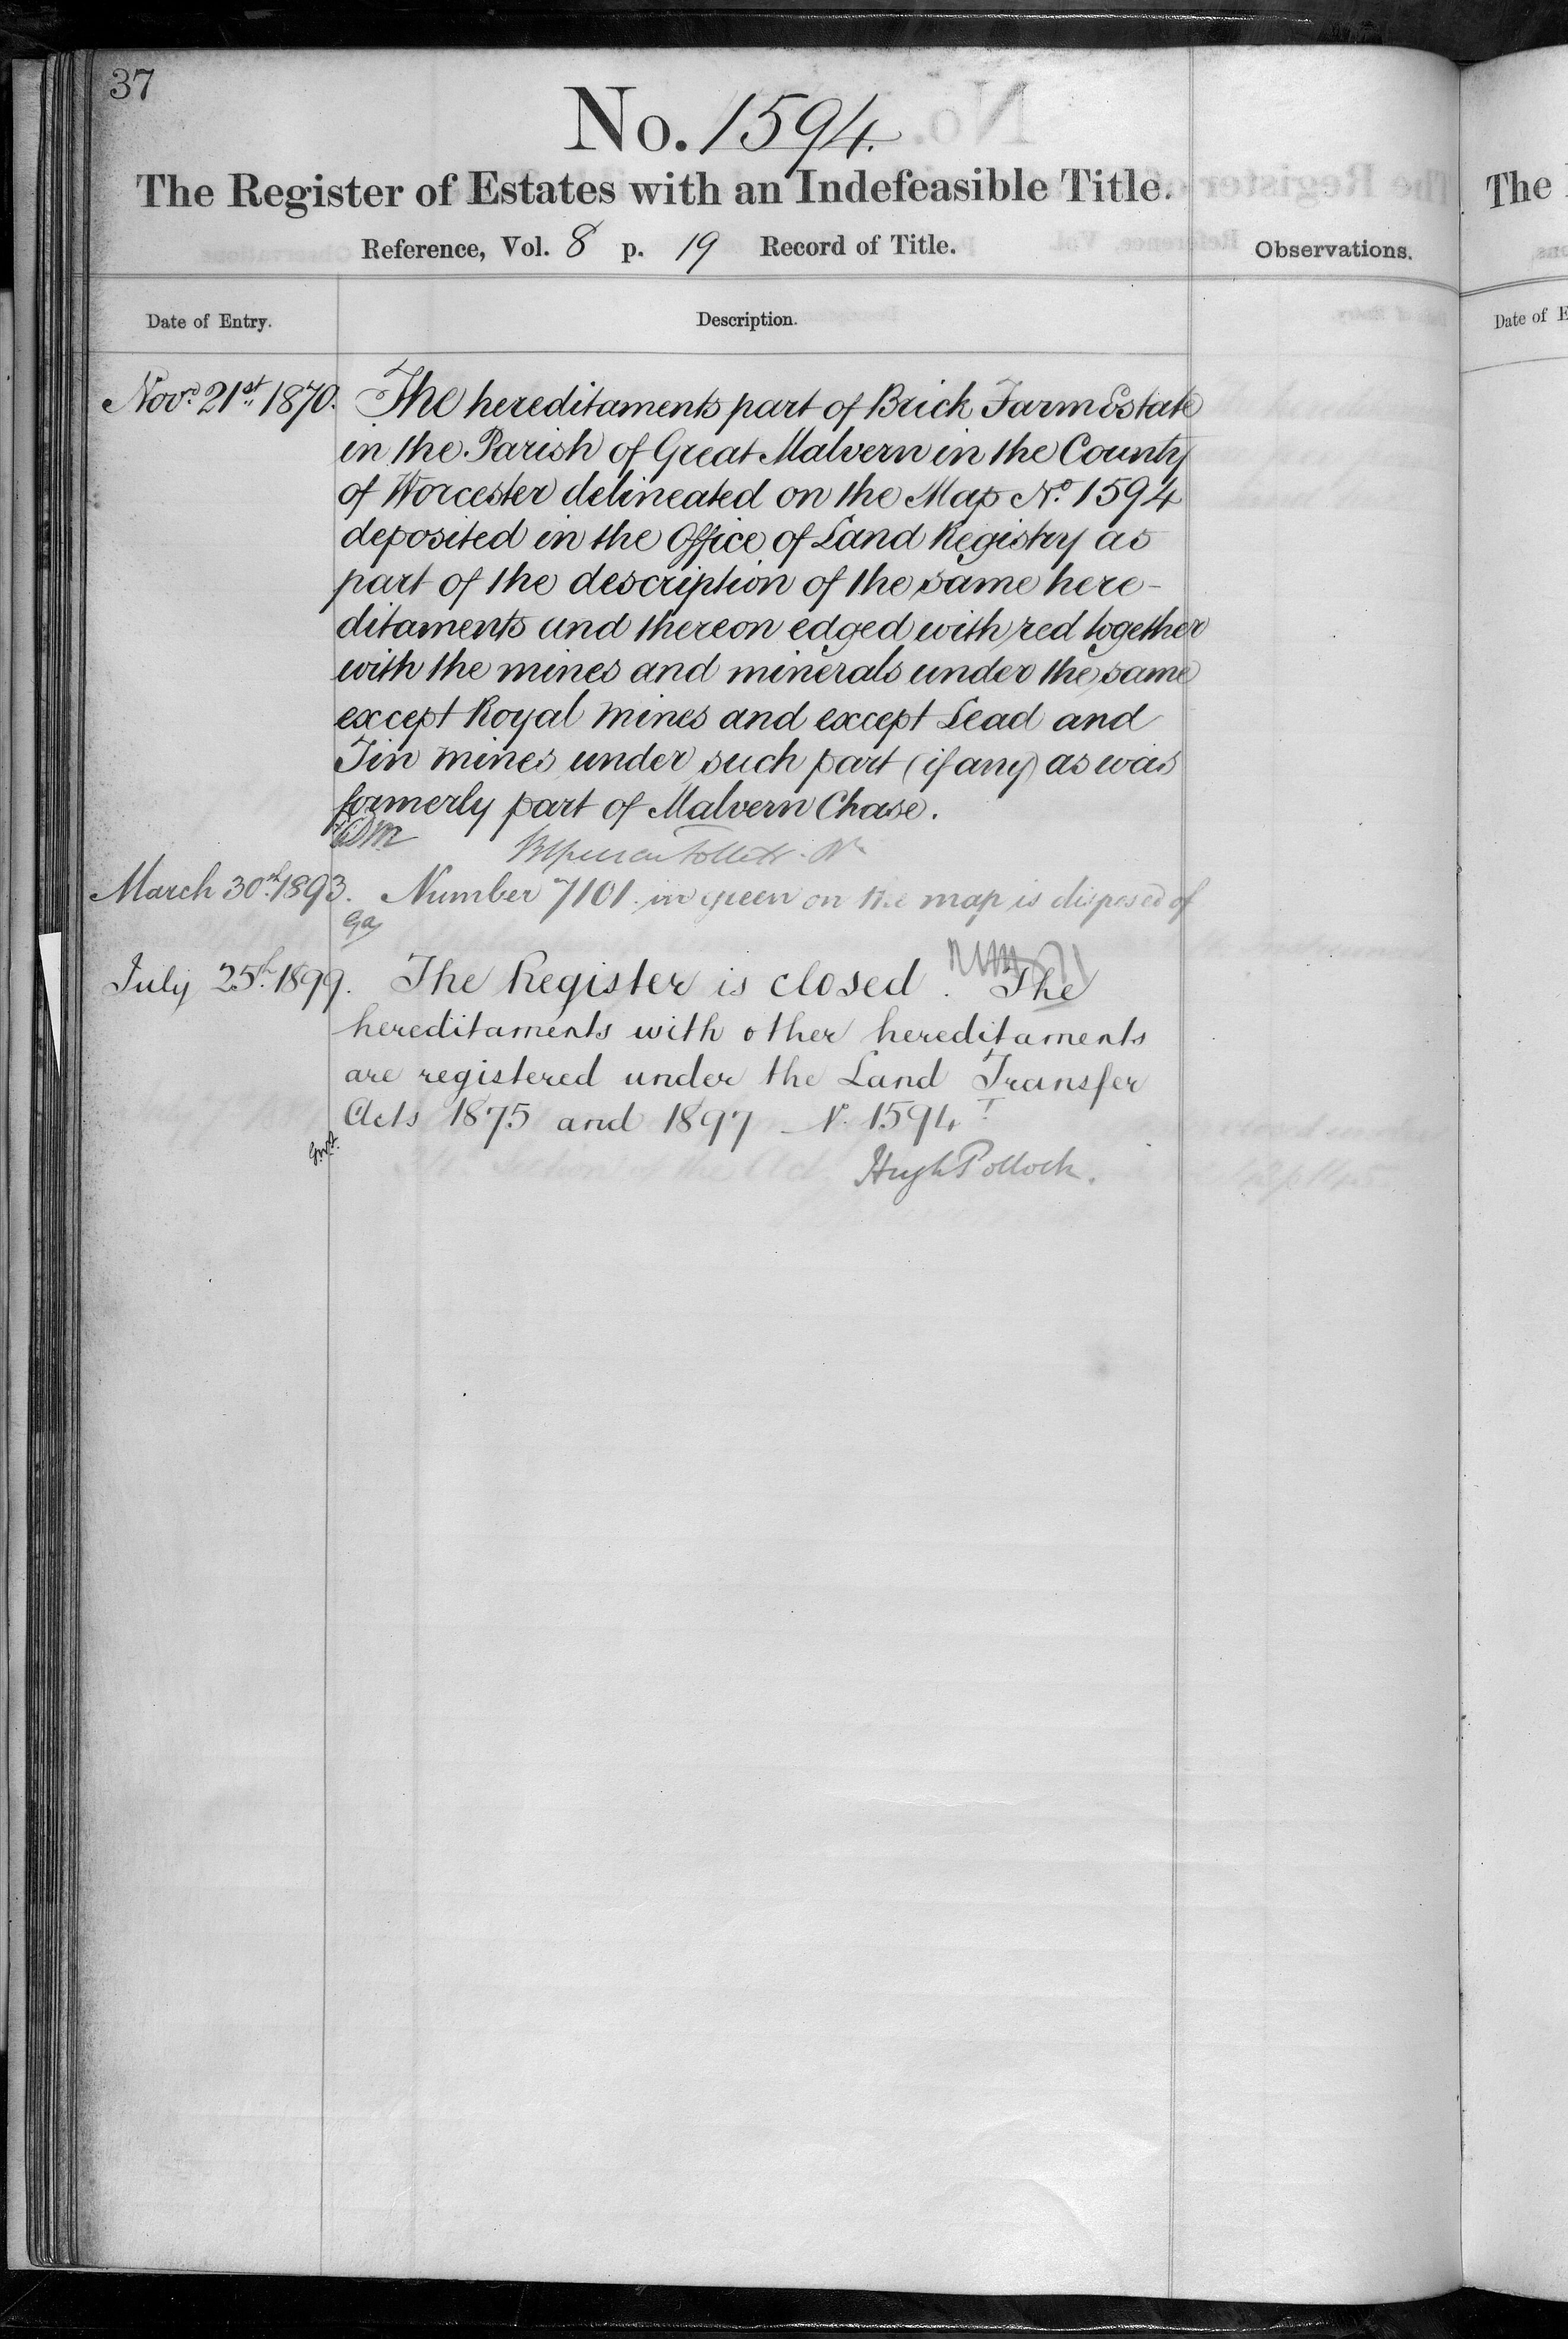 37
No. 1594.
The Register of Estates with an Indefeasible Title.
Reference, Vol. 8 p. 19 Record of Title.
Observations.
Date of Entry.
Description.
Novr 21st 1870. The hereditaments part of Brick Farm Estate
in the Parish of Great Malvern in the County
of Worcester delineated on the Map No. 1594
deposited in the Office of Land Registry as
part of the description of the same here-
ditaments and thereon edged with red together
with the mines and minerals under the same
except Royal mines and except Lead and
Tin mines under such part (if any) as was
formerly part of Malvern Chase.
March 30th 1893. Number 7101 in green on the map is disposed of
July 25th 1899. The Register is closed. The
hereditaments with other hereditaments
are registered under the Land Transfer
Acts 1875 and 1897 N. 1594
Hugh Pollock.
The
Date of E